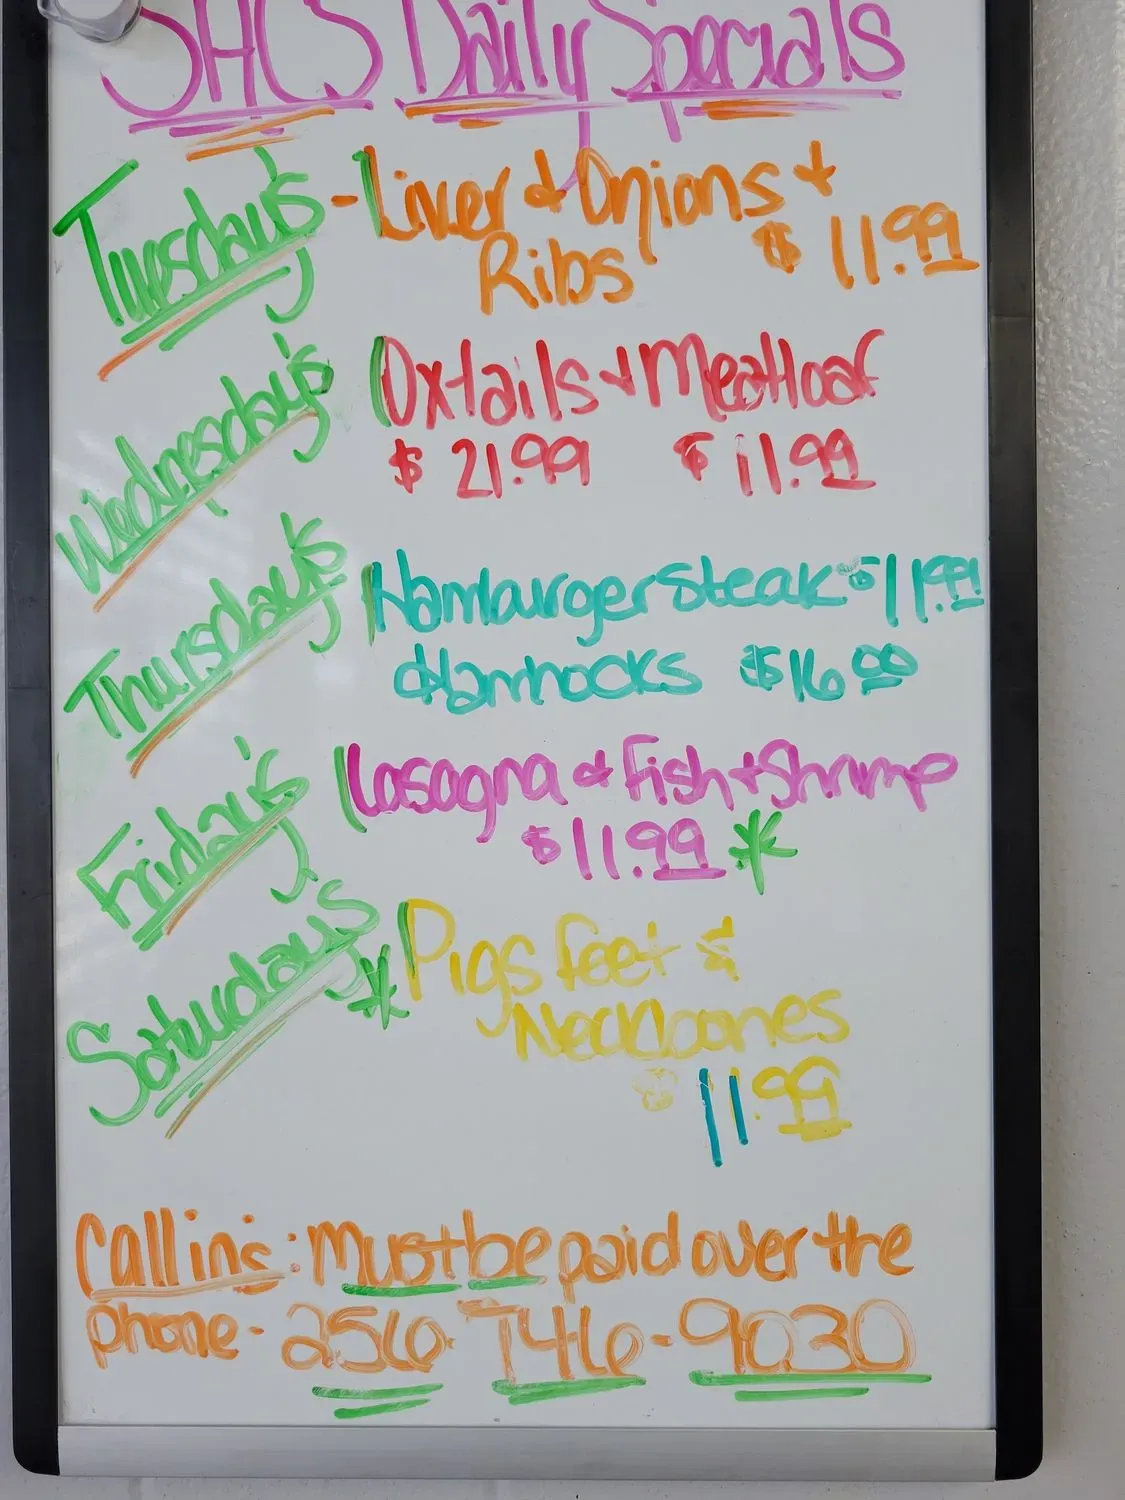 SHCS Daily Specials
Tuesday's - Liver & Onions &
Ribs $11.99
Wednesday's Oxtails & Meatloaf
$21.99 $11.99
Thursday's Hamburger Steak $11.99
& Hamhocks $16.00
Friday's Lasagna & Fish & Shrimp
$11.99 *
Saturday's * Pigs Feet &
Neckbones
$11.99
Call in's: Must be paid over the
phone - 256-746-9030